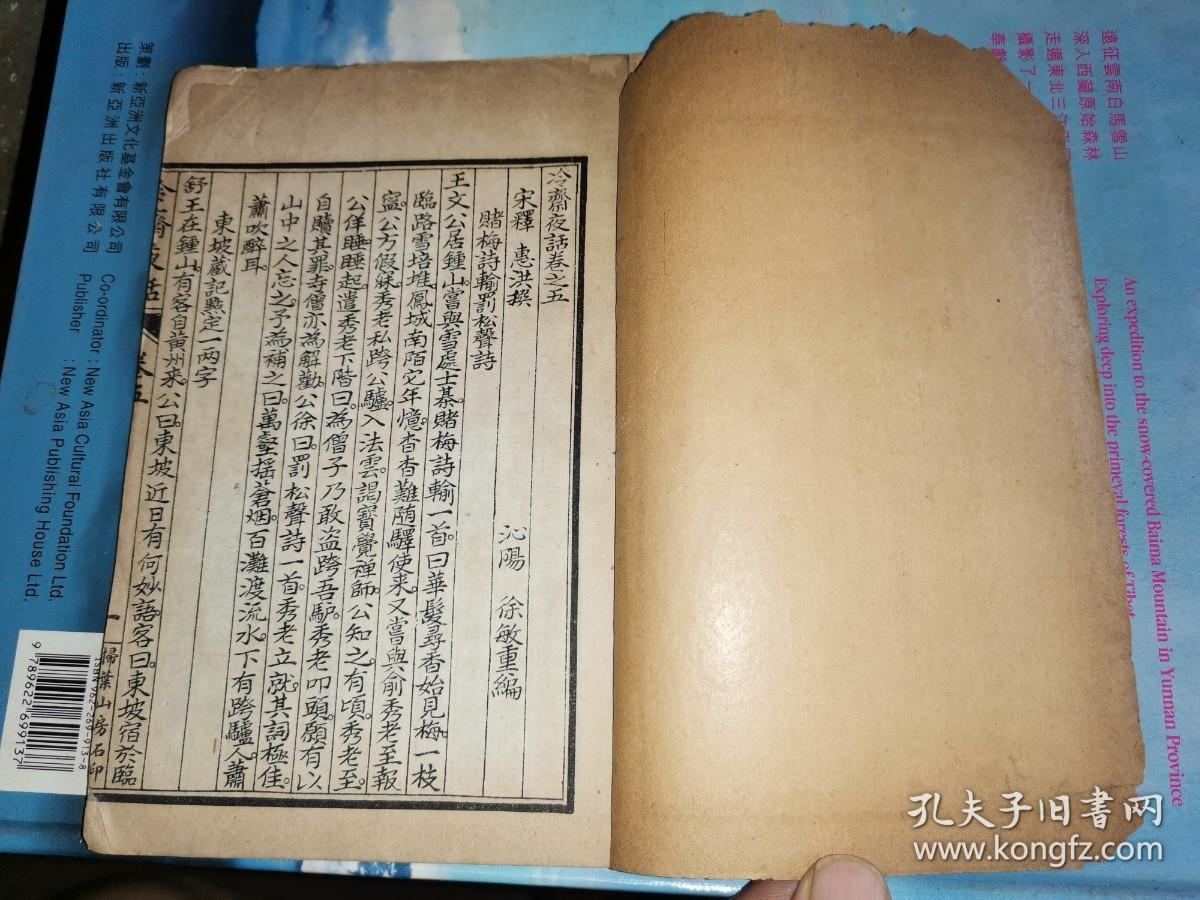 冷齋夜話卷之五
宋釋 惠洪撰 沁陽 徐敏重編
賭梅詩輸罰松聲詩
王文公居鍾山。嘗與雪處士棊。賭梅詩輸一首。曰華髮尋香始見梅。一枝
臨路雪培堆。鳳城南陌它年憶。杳杳難隨驛使来。又嘗與俞秀老至報
寧。公方假寐。秀老私跨公驢。入法雲。謁寶覺禪師。公知之。有頃。秀老至。
公佯睡。睡起遣秀老下階。曰。為僧子乃敢盜跨吾馿。秀老叩頭。願有以
自贖其罪。寺僧亦為解勸。公徐曰。罰松聲詩一首。秀老立就。其詞極佳。
山中之人忘之。予為補之。曰。萬壑搖蒼烟。百灘渡流水。下有跨驢人。蕭
蕭吹醉耳。
東坡蔵記點定一兩字
舒王在鍾山。有客自黄州来。公曰。東坡近日有何妙語。客曰。東坡宿於臨
冷齋夜話 卷五
一 掃葉山房石印
遠征雲南白馬雪山
深入西藏原始森林
走遍東北三江
攝影了一
奉獻
An expedition to the snow-covered Baima Mountain in Yunnan Province
Exploring deep into the primeval forests of Tibet
策劃：新亞洲文化基金會有限公司
Co-ordinator : New Asia Cultural Foundation Ltd.
出版：新亞洲出版社有限公司
Publisher : New Asia Publishing House Ltd.
ISBN 962-269-913-8
9 789622 699137
孔夫子旧书网
www.kongfz.com